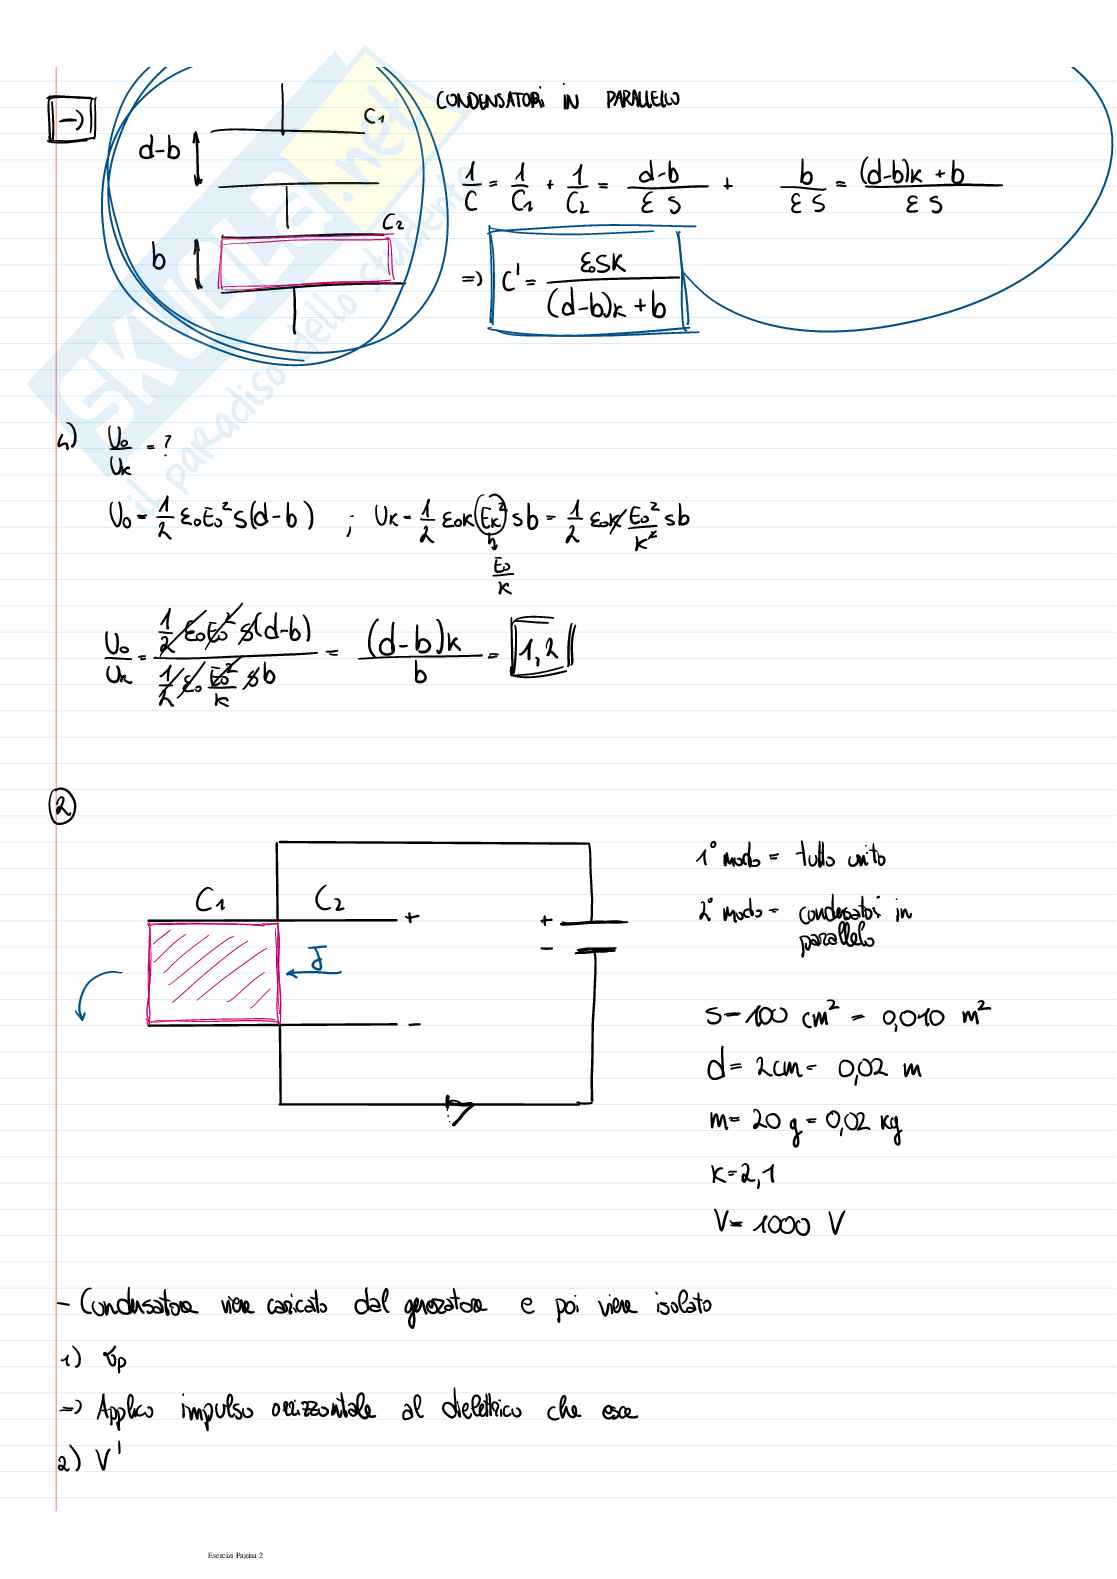 →) CONDENSATORI IN PARALLELO
C1
d-b
1/C = 1/C1 + 1/C2 = d-b/ε S + b/ε S = (d-b)k + b/ε S
C2
b
=> C' = ε0SK/(d-b)k + b
SKUOLA.net
il paradiso dello studente
4) U0/Uk = ?
U0 = 1/2 ε0E0² S(d-b) ; Uk = 1/2 ε0k(Ek²) Sb = 1/2 ε0k E0²/k² Sb
E0/k
U0/Uk = 1/2 ε0E0² S(d-b) / 1/2 ε0 E0²/k Sb = (d-b)k/b = 1,2
2
1° modo = tutto unito
C1 C2
+ +
2° modo = condensatori in
parallelo
-
J
-
S = 100 cm² = 0,010 m²
d = 2cm = 0,02 m
m = 20 g = 0,02 kg
k = 2,1
V = 1000 V
- Condensatore viene caricato dal generatore e poi viene isolato
1) σp
=> Applico impulso orizzontale al dielettrico che esce
2) V'
Esercizi Pagina 2